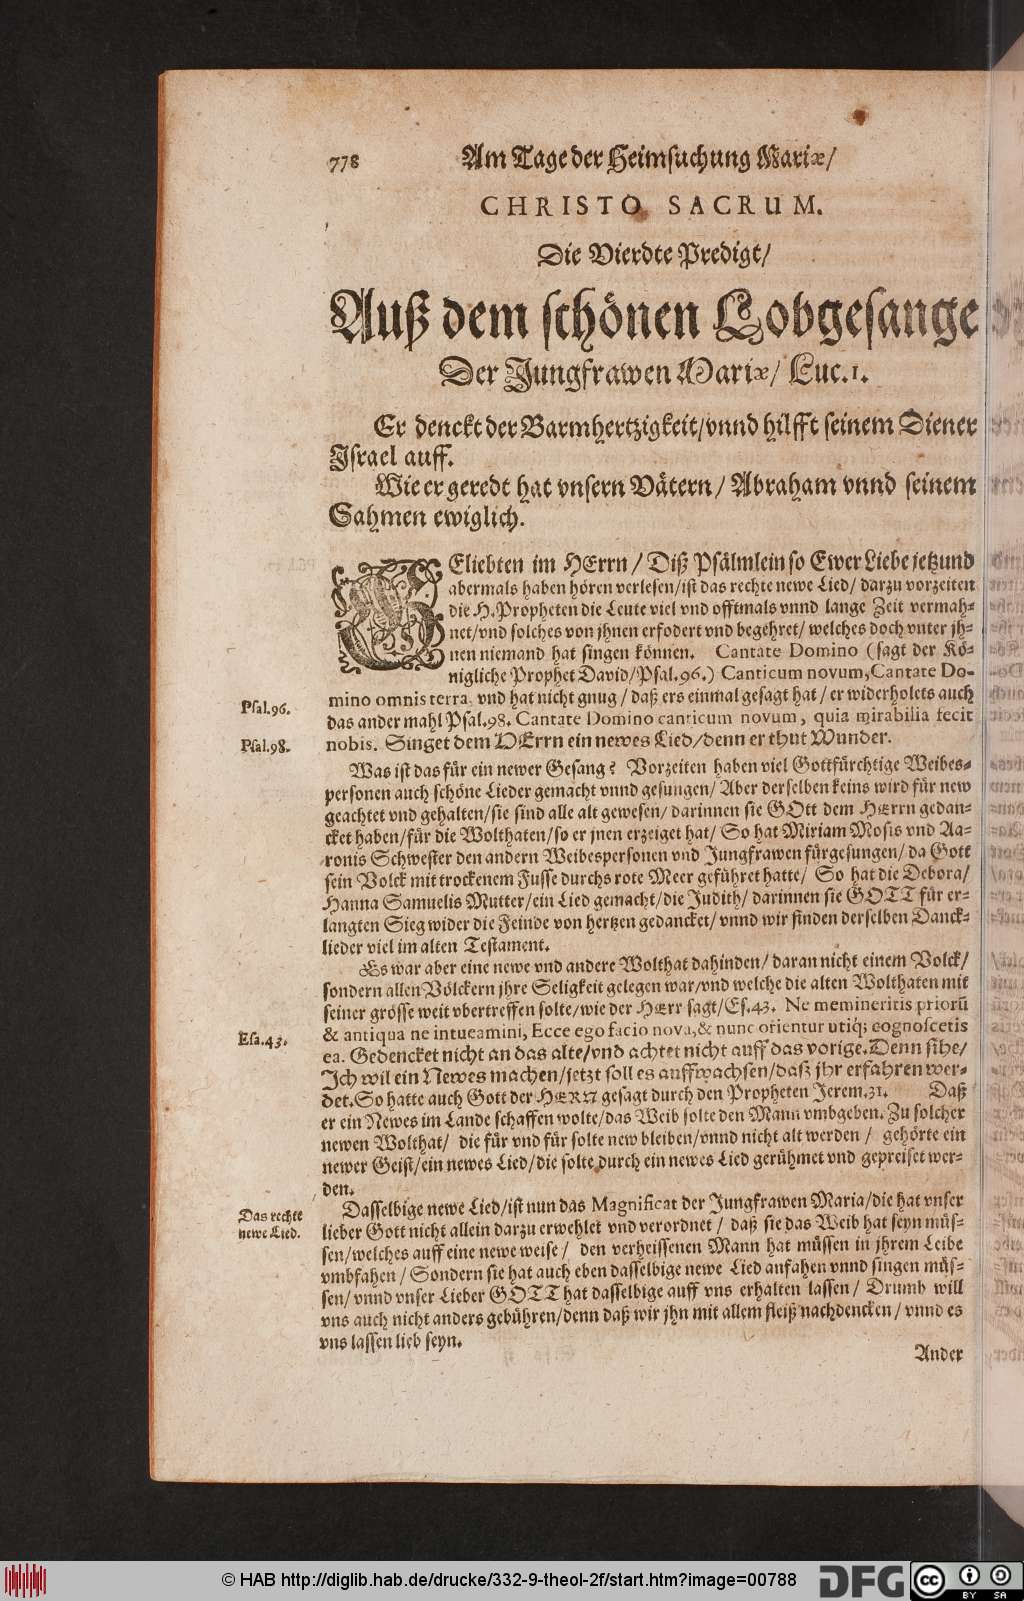 778 Am Tage der Heimsuchung Mariæ/
CHRISTO SACRUM.
Die Vierdte Predigt/
Auß dem schönen Lobgesange
Der Jungfrawen Mariæ/ Luc.1.
Er denckt der Barmhertzigkeit/vnnd hilfft seinem Diener
Israel auff.
Wie er geredt hat vnsern Vätern/ Abraham vnnd seinem
Sahmen ewiglich.
GEliebten im HErrn/ Diß Psälmlein so Ewer Liebe jetzund
abermals haben hören verlesen/ist das rechte newe Lied/ darzu vorzeiten
die H. Propheten die Leute viel vnd offtmals vnnd lange Zeit vermah-
net/vnd solches von jhnen erfodert vnd begehret/ welches doch vnter jh-
nen niemand hat singen können. Cantate Domino (sagt der Kö-
nigliche Prophet David/Psal.96.) Canticum novum, Cantate Do-
mino omnis terra, vnd hat nicht gnug/ daß ers einmal gesagt hat/ er widerholets auch
Psal.96.
das ander mahl Psal.98. Cantate Domino canticum novum, quia mirabilia fecit
nobis. Singet dem HErrn ein newes Lied/denn er thut Wunder.
Psal.98.
Was ist das für ein newer Gesang? Vorzeiten haben viel Gottfürchtige Weibes-
personen auch schöne Lieder gemacht vnnd gesungen/ Aber derselben keins wird für new
geachtet vnd gehalten/sie sind alle alt gewesen/ darinnen sie GOtt dem HErrn gedan-
cket haben/für die Wolthaten/so er jnen erzeiget hat/ So hat Miriam Mosis vnd Aa-
ronis Schwester den andern Weibespersonen vnd Jungfrawen fürgesungen/ da Gott
sein Volck mit trockenem Fusse durchs rote Meer geführet hatte/ So hat die Debora/
Hanna Samuelis Mutter/ein Lied gemacht/die Judith/ darinnen sie GOTT für er-
langten Sieg wider die Feinde von hertzen gedancket/ vnnd wir finden derselben Danck-
lieder viel im alten Testament.
Es war aber eine newe vnd andere Wolthat dahinden/ daran nicht einem Volck/
sondern allen Völckern jhre Seligkeit gelegen war/vnd welche die alten Wolthaten mit
seiner grösse weit vbertreffen solte/wie der HErr sagt/Es.43. Ne memineritis priorũ
& antiqua ne intueamini, Ecce ego facio nova, & nunc orientur utiq; cognoscetis
Esa.43.
ea. Gedencket nicht an das alte/vnd achtet nicht auff das vorige. Denn sihe/
Ich wil ein Newes machen/jetzt soll es auffwachsen/daß jhr erfahren wer-
det. So hatte auch Gott der HERR gesagt durch den Propheten Jerem.31. Daß
er ein Newes im Lande schaffen wolte/das Weib solte den Mann vmbgeben. Zu solcher
newen Wolthat/ die für vnd für solte new bleiben/vnnd nicht alt werden/ gehörte ein
newer Geist/ein newes Lied/die solte durch ein newes Lied gerühmet vnd gepreiset wer-
den.
Dasselbige newe Lied/ist nun das Magnificat der Jungfrawen Maria/die hat vnser
Das rechte
newe Lied.
lieber Gott nicht allein darzu erwehlet vnd verordnet/ daß sie das Weib hat seyn müs-
sen/welches auff eine newe weise/ den verheissenen Mann hat müssen in jhrem Leibe
vmbfahen/ Sondern sie hat auch eben dasselbige newe Lied anfahen vnnd singen müs-
sen/ vnnd vnser Lieber GOTT hat dasselbige auff vns erhalten lassen/ Drumb will
vns auch nicht anders gebühren/denn daß wir jhn mit allem fleiß nachdencken/ vnnd es
vns lassen lieb seyn.
Ander
© HAB http://diglib.hab.de/drucke/332-9-theol-2f/start.htm?image=00788
DFG
cc BY SA